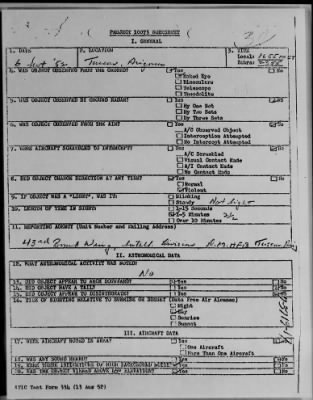 PROJECT 10073 WORKSHEET
I. GENERAL
1. DATE
2. LOCATION
3. TIME
6 Sept '52
Tucson, Arizona
Local:
4. WAS OBJECT OBSERVED FROM THE GROUND? Yes No
Naked Eye
Binoculars
Telescope
Theodolite
5. WAS OBJECT OBSERVED BY GROUND RADAR? Yes No
By One Set
By Two Sets
By Three Sets
6. WAS OBJECT OBSERVED FROM THE AIR? Yes No
A/C Observed Object
Interception Attempted
No Intercept Attempted
7. WERE AIRCRAFT SCRAMBLED TO INTERCEPT? Yes No
A/C Scrambled
Visual Contact Made
A/I Contact Made
No Contact Made
8. DID OBJECT CHANGE DIRECTION AT ANY TIME? Yes No
Normal
Violent
9. IF OBJECT WAS A "LIGHT", WAS IT: Blinking
Steady Not light
10. LENGTH OF TIME IN SIGHT: 1-15 Seconds
1-5 Minutes
Over 10 Minutes
11. REPORTING AGENCY (Unit Number and Mailing Address)
43rd Bomb Wing,
II. ASTRONOMICAL DATA
12. WHAT ASTRONOMICAL ACTIVITY WAS NOTED?
No
13. DID OBJECT APPEAR TO ARCH DOWNWARD? Yes No
14. DID OBJECT HAVE A TAIL? Yes No
15. DID OBJECT APPEAR TO DISINTEGRATE? Yes No
16. TIME OF SIGHTING RELATIVE TO SUNRISE OR SUNSET (Data Free Air Almanac)
Night
Day
Sunrise
Sunset
III. AIRCRAFT DATA
17. WERE AIRCRAFT NOTED IN AREA? Yes No
One Aircraft
More Than One Aircraft
18. WAS ANY SOUND HEARD? Yes No
ATIC Test Form 334 (13 Aug 52)